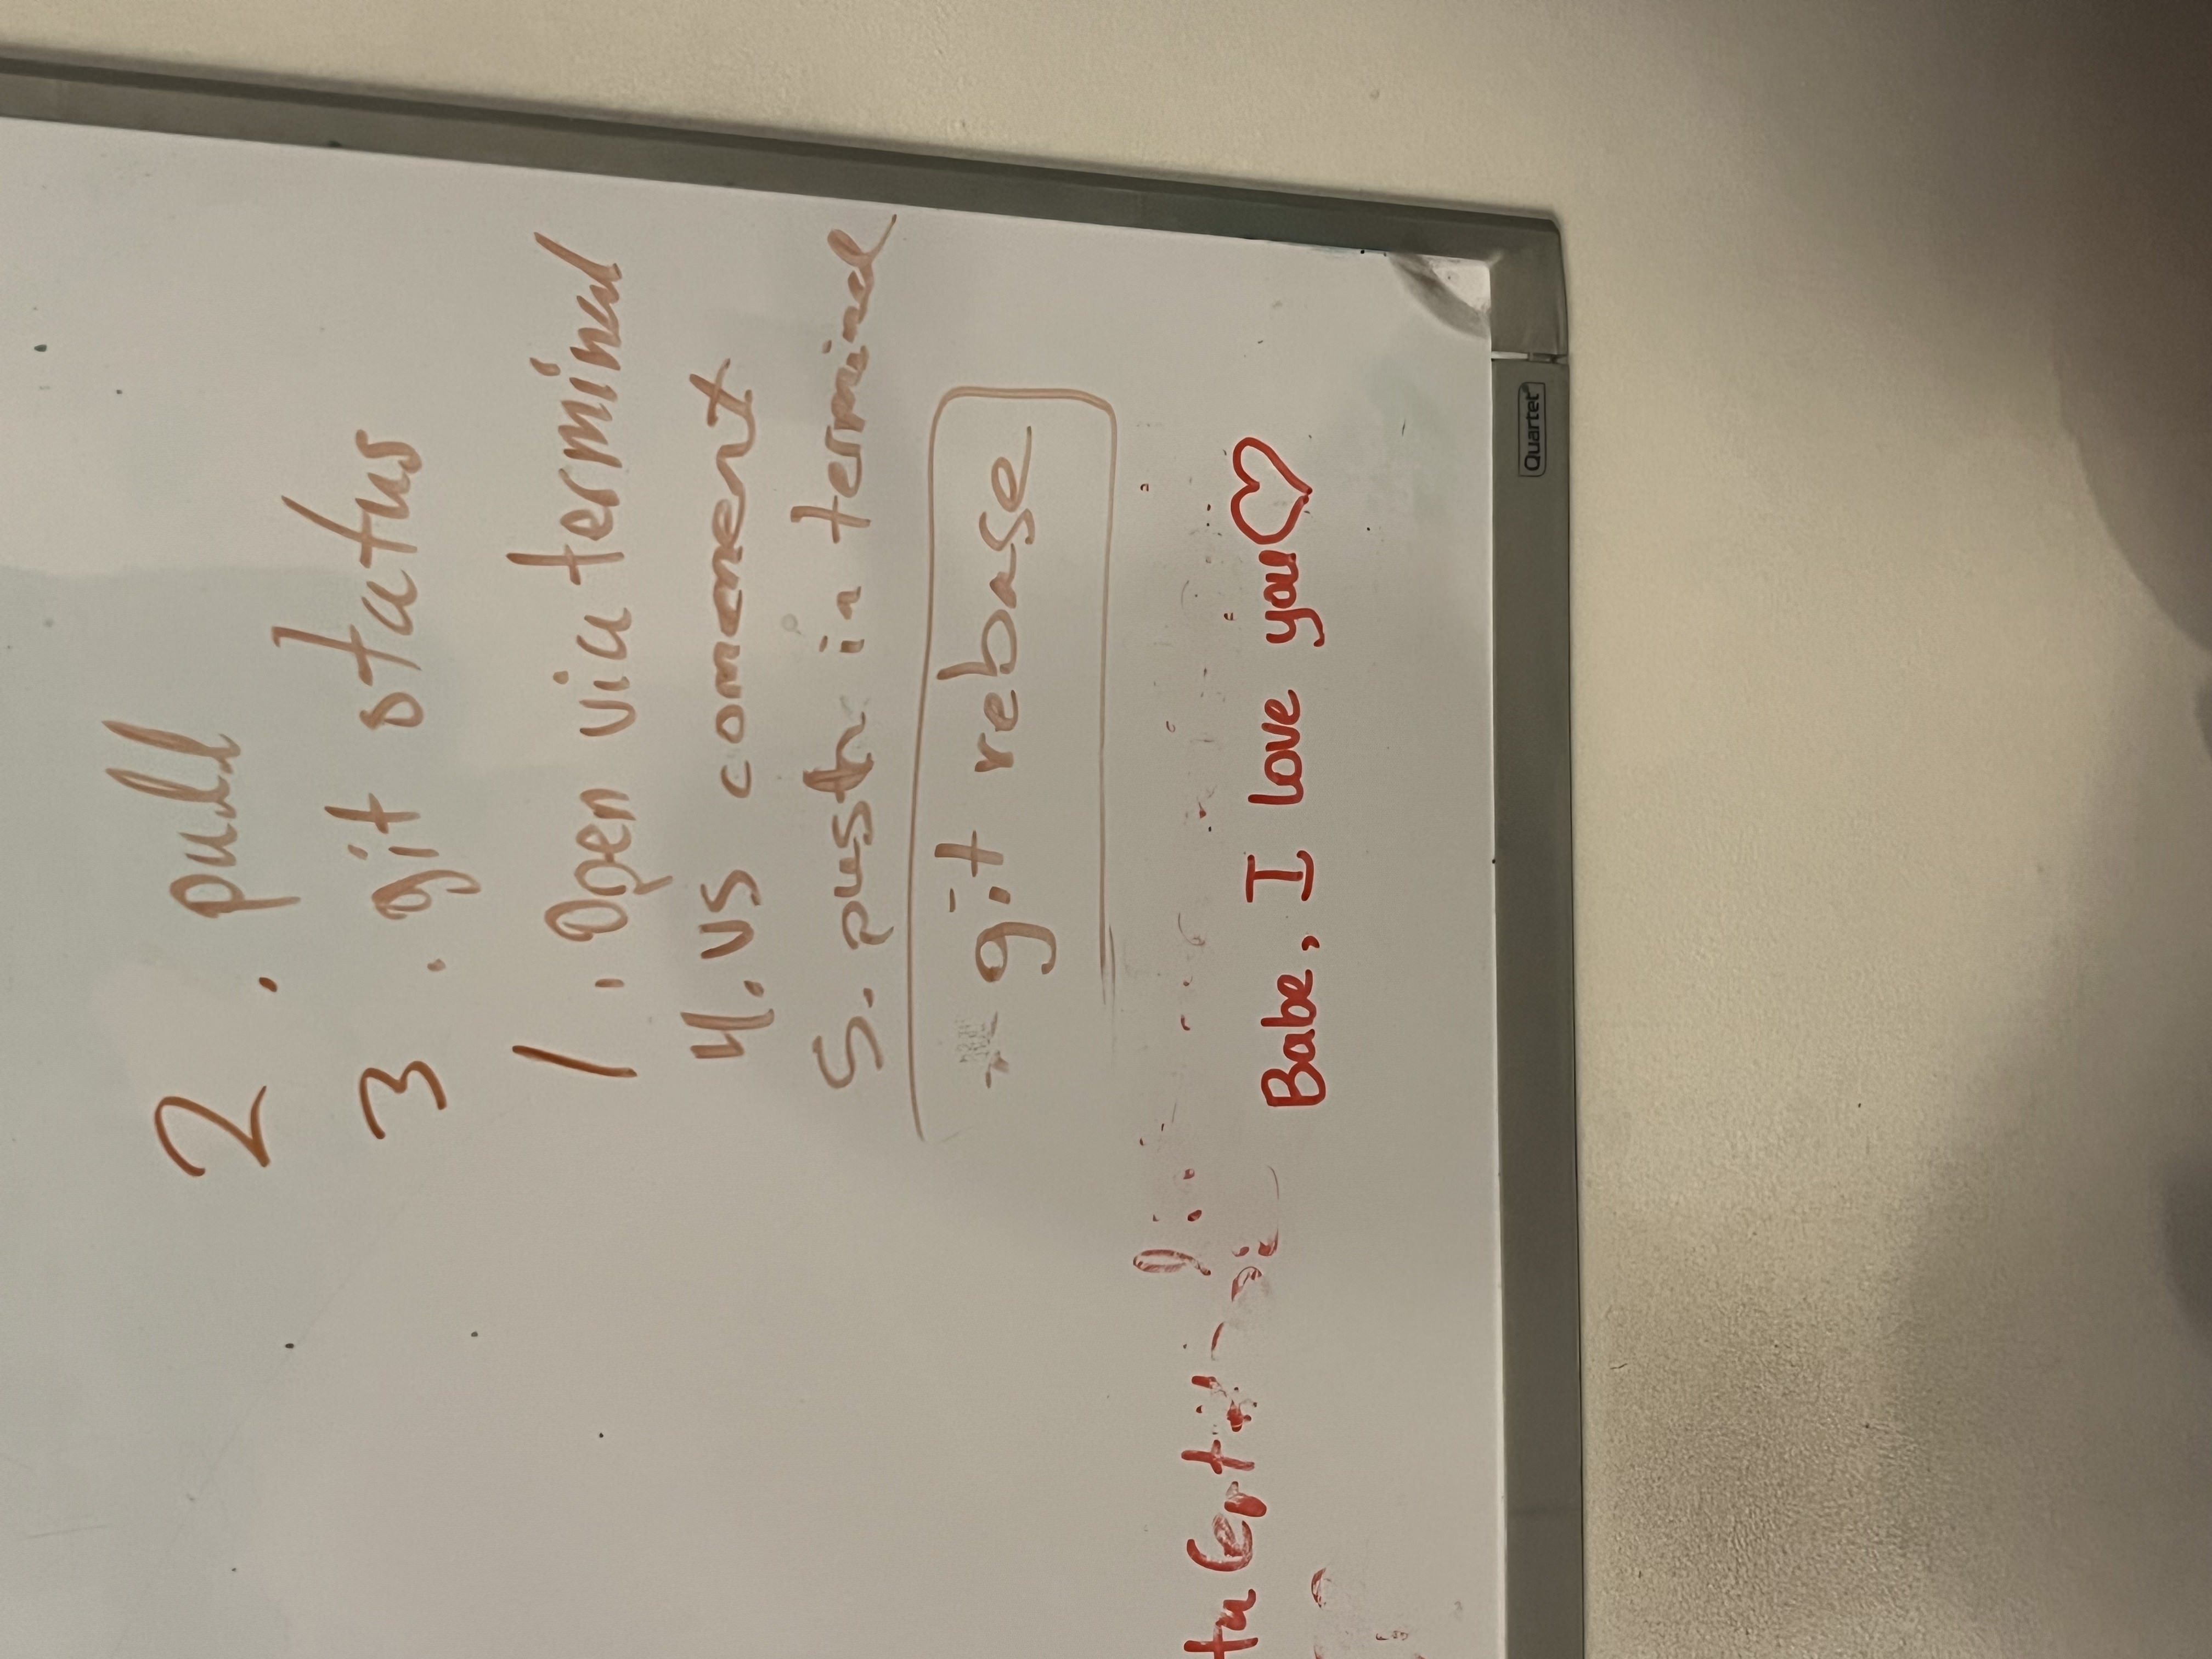 2. pull
3. git status
1. Open via terminal
4. VS comment
5. push in terminal
* git rebase
Babe, I love you♡
Quartet